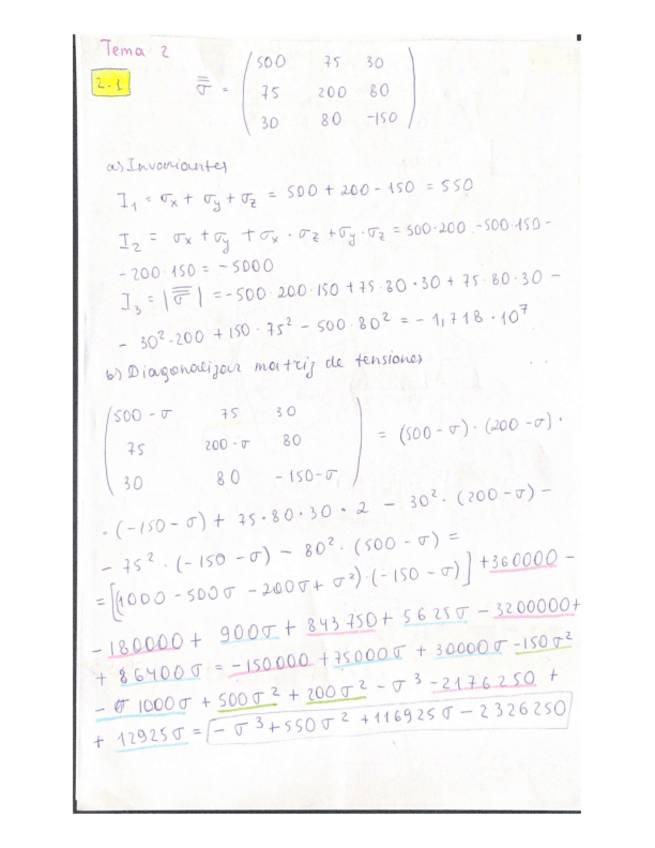 Tema 2
2.1
σ = (500 75 30
75 200 80
30 80 -150)
a) Invariantes
I₁ = σx + σy + σz = 500 + 200 - 150 = 550
I₂ = σx + σy + σx · σz + σy · σz = 500·200 - 500·150 -
- 200·150 = - 5000
I₃ = |σ| = -500·200·150 + 75·80·30 + 75·80·30 -
- 30²·200 + 150·75² - 500·80² = - 1,718·10⁷
b) Diagonalizar matriz de tensiones
(500 - σ 75 30
75 200-σ 80
30 80 -150-σ) = (500-σ)·(200-σ)·
·(-150-σ) + 75·80·30·2 - 30²·(200-σ) -
- 75²·(-150-σ) - 80²·(500-σ) =
= [(1000 - 500σ - 200σ + σ²)·(-150-σ)] + 360000 -
- 180000 + 900σ + 843750 + 5625σ - 3200000 +
+ 86400σ = -150000 + 75000σ + 30000σ - 150σ²
- 1000σ + 500σ² + 200σ² - σ³ - 2176250 +
+ 12925σ = - σ³ + 550σ² + 116925σ - 2326250